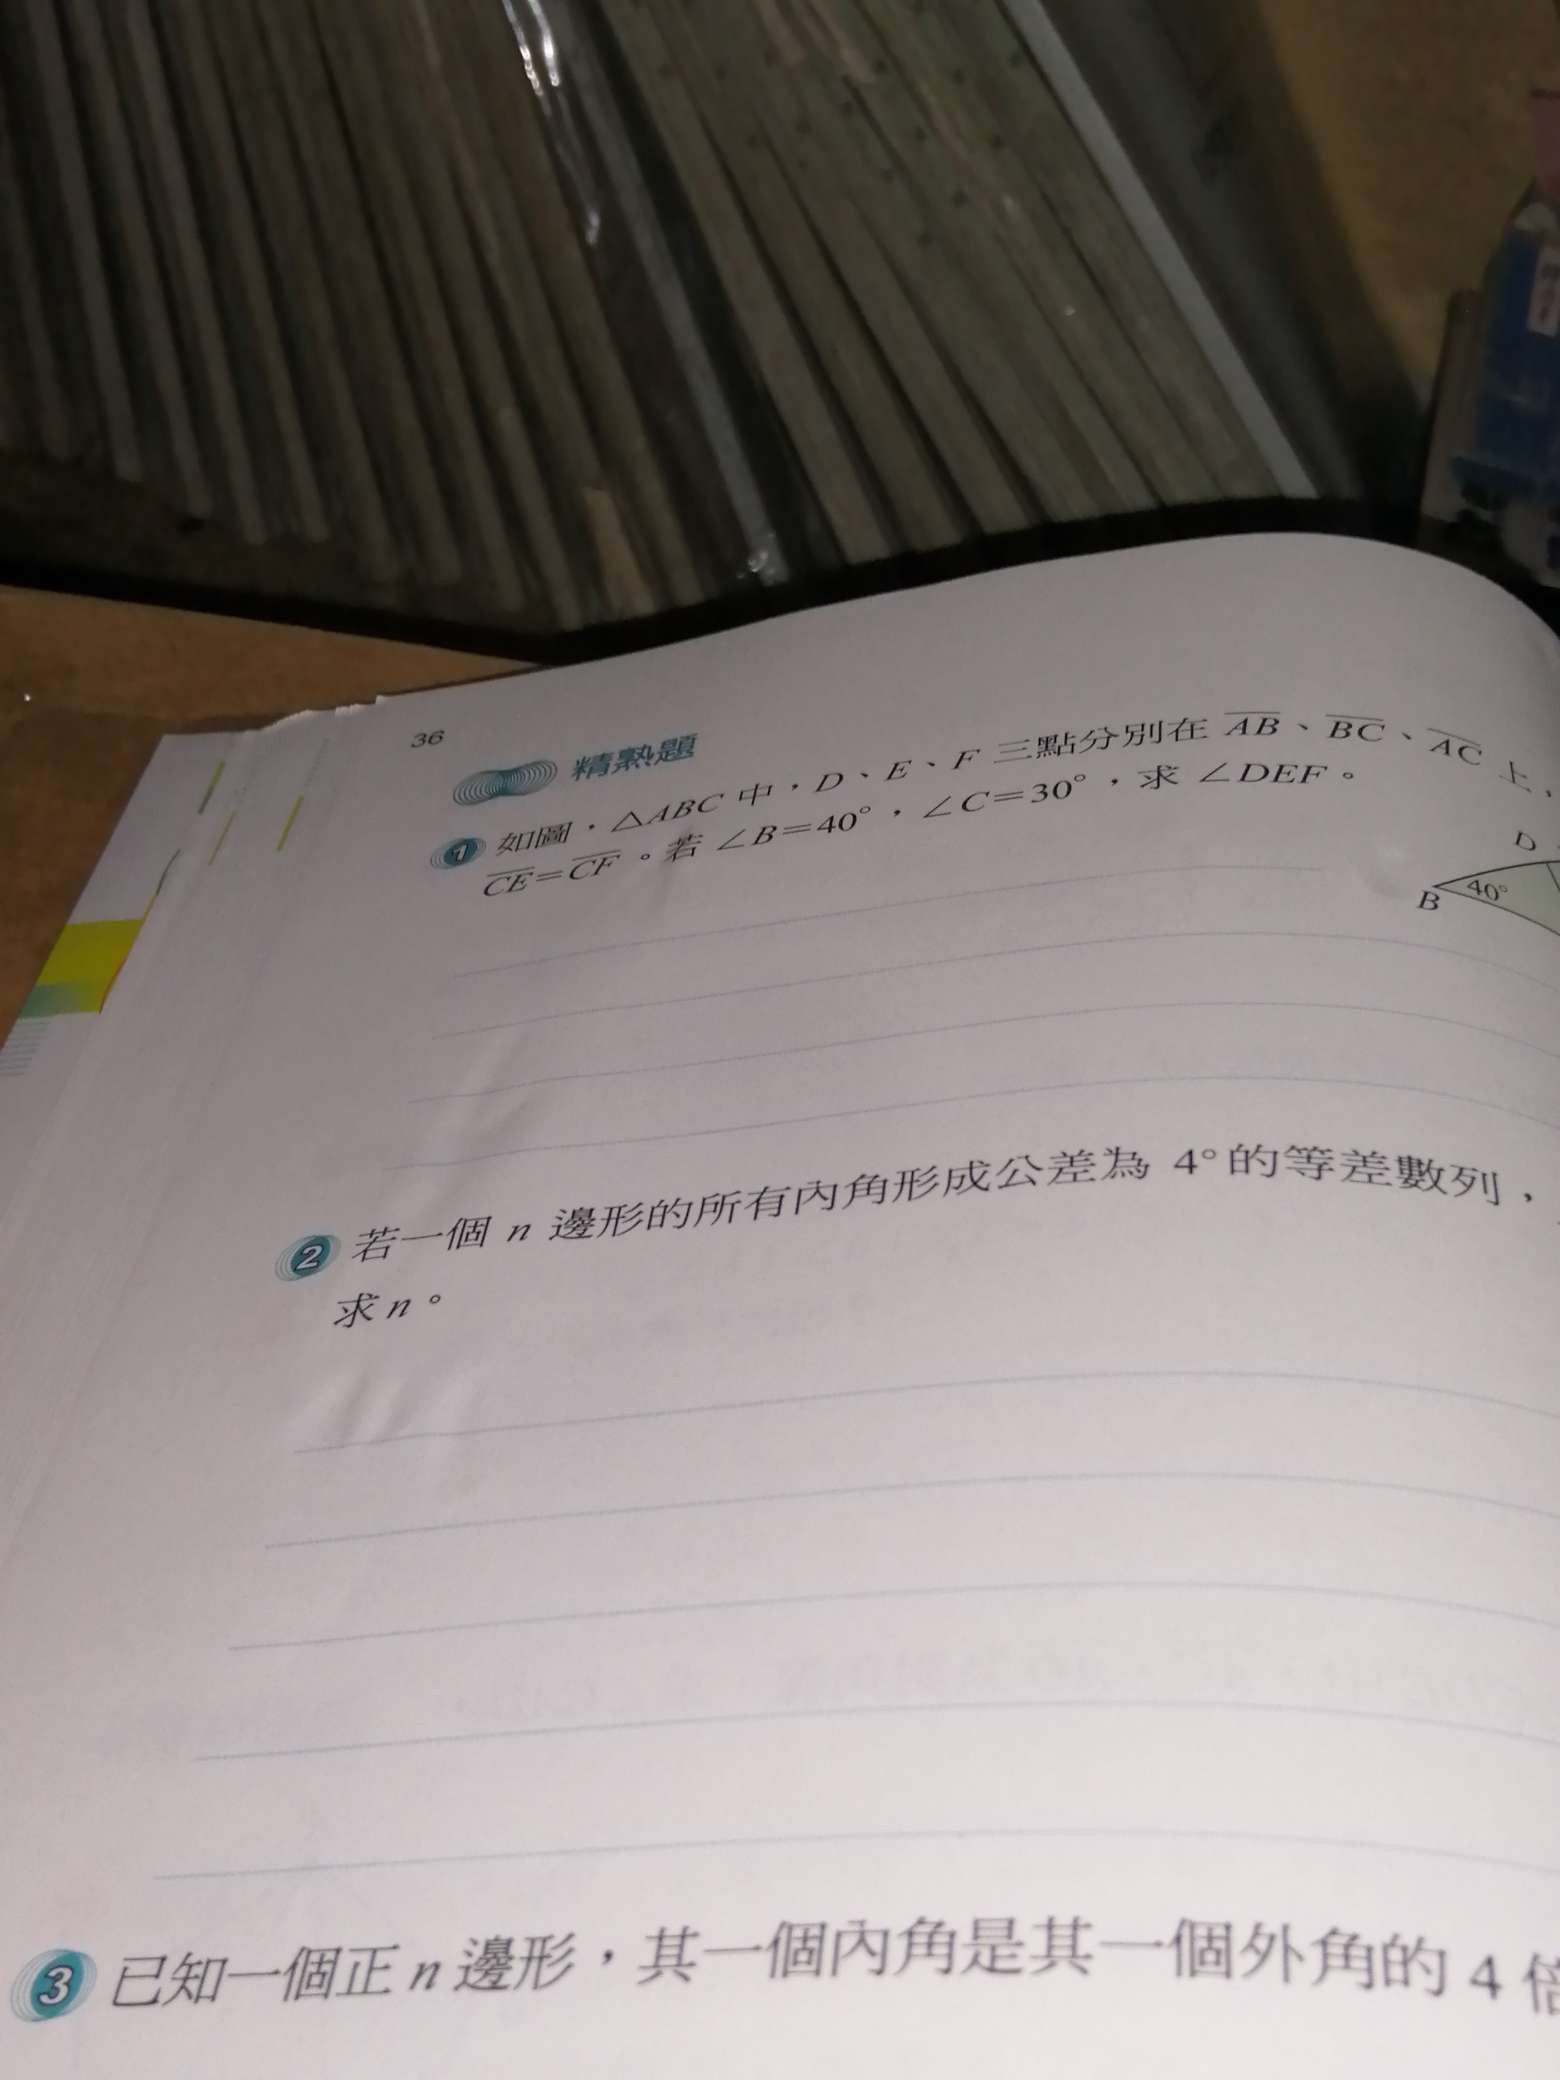 36
精熟題
1 如圖，△ABC 中，D、E、F 三點分別在 AB、BC、AC 上，
CE=CF。若 ∠B=40°，∠C=30°，求 ∠DEF。
D
B
40°
2 若一個 n 邊形的所有內角形成公差為 4°的等差數列，
求 n。
3 已知一個正 n 邊形，其一個內角是其一個外角的 4 倍